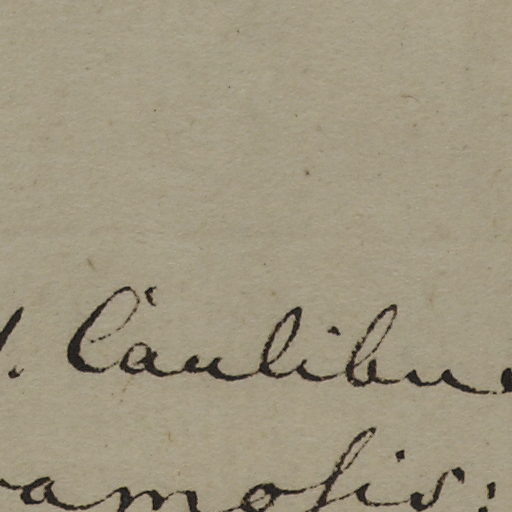 . Caulibus
ramosis: